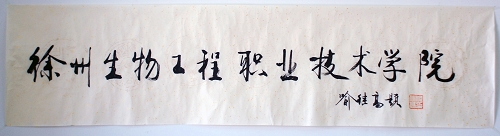 徐州生物工程职业技术学院
喻继高题